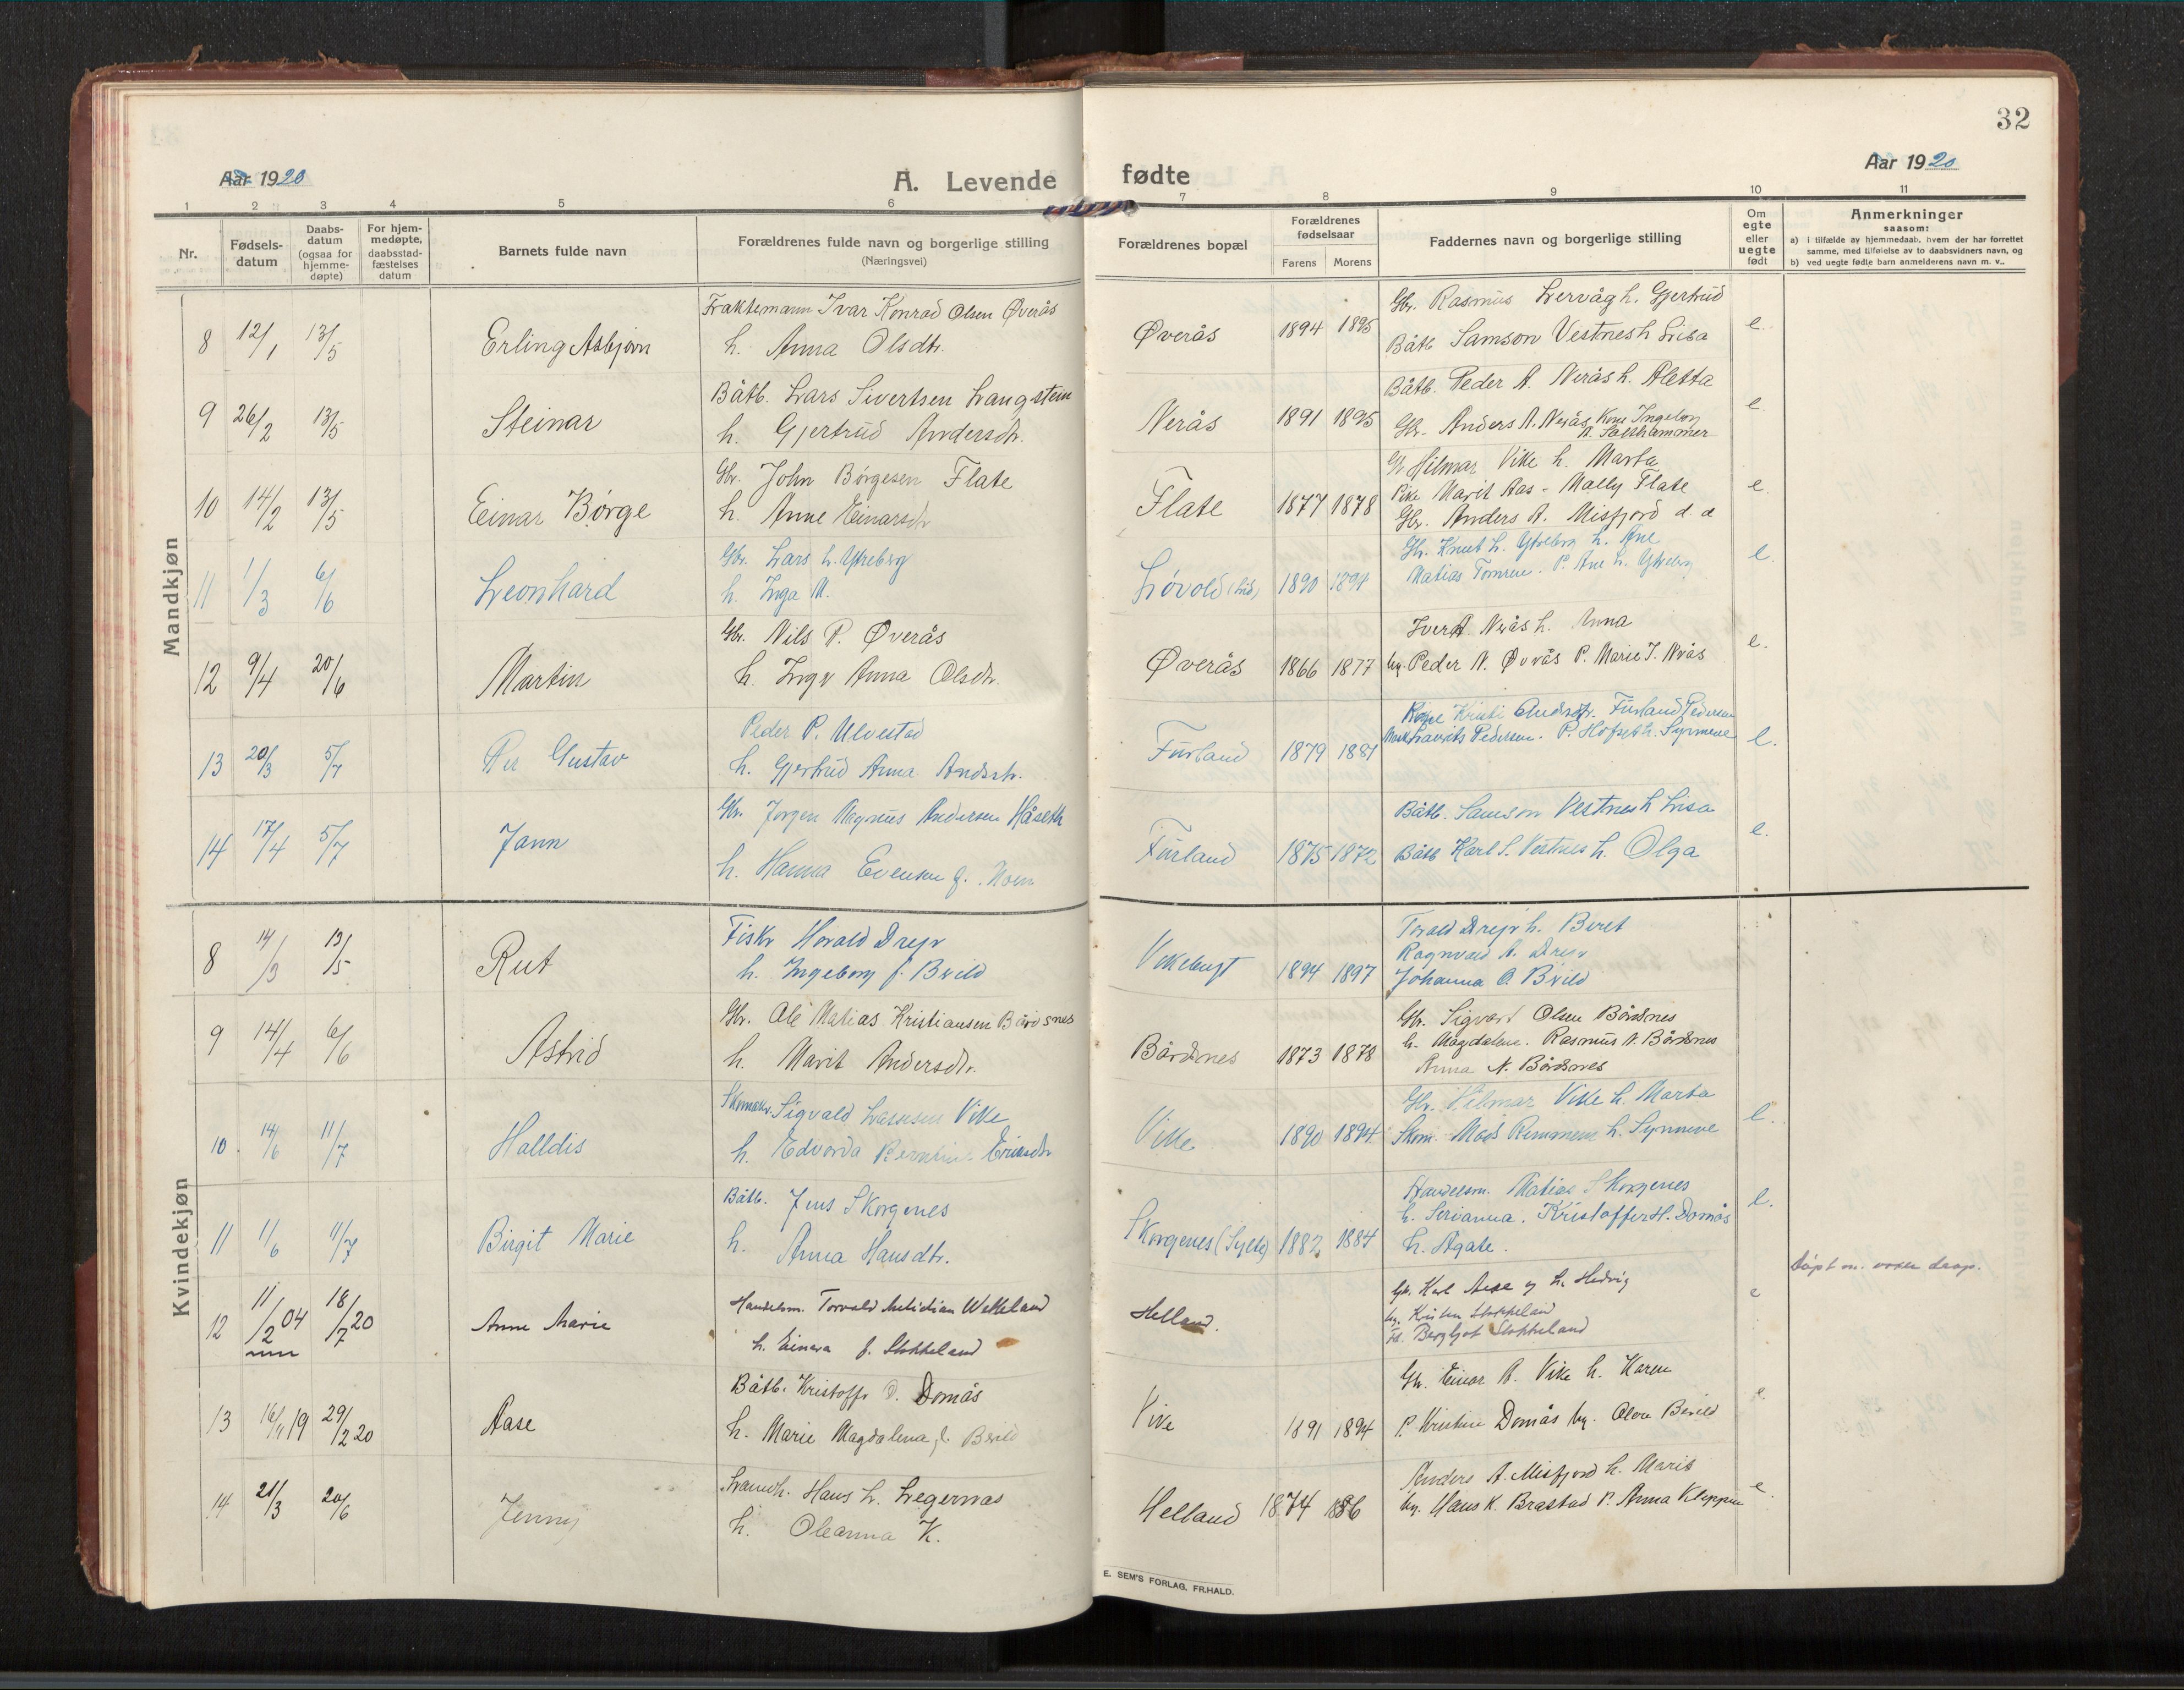 32
Aar 1920
A. Levende fødte
Aar 1920
1 2 3 4 5 6 7 8 9 10 11
Nr.
Fødsels-
datum
Daabs-
datum
(ogsaa for
hjemme-
døpte)
For hjem-
medøpte,
daabsstad-
fæstelses
datum
Barnets fulde navn
Forældrenes fulde navn og borgerlige stilling
(Næringsvei)
Forældrenes bopæl
Forældrenes
fødselsaar
Farens Morens
Faddernes navn og borgerlige stilling
Om
egte
eller
uegte
født
Anmerkninger
saasom:
a) i tilfælde av hjemmedaab, hvem der har forrettet
samme, med tilføielse av to daabsvidners navn, og
b) ved uegte fødte barn anmelderens navn m. v..
Mandkjøn
8 12/1 13/5 Erling Asbjørn
Fraktemann Ivar Konrad Olsen Øverås
h. Anna Olsdtr.
Øverås 1894 1895
Gbr. Rasmus Lervåg h. Gjertrud
Båtb. Samson Vestnes h Lisa
e.
9 26/2 13/5 Steinar
Båtb. Lars Sivertsen Langstein
h. Gjertrud Andersdtr.
Nerås 1891 1895
Båtb. Peder A. Nerås h. Aletta
Gbr. Anders A. Nerås, Kone Ingeborg
A. Salthammer
e.
10 14/2 13/5 Einar Børge
Gbr. John Børgesen Flate
h. Anne Einarsdtr
Flate 1877 1878
Gbr Hilmar Vike h. Marta
Pike Marit Aas - Mally Flate
Gbr. Anders A. Misfjord
e.
11 1/3 6/6 Leonhard
Gbr. Lars L. Ytreberg
h. Inga M.
Løvold (Lid) 1890 1894
Gbr. Knut L. Ytreberg h. Ane
Matias Tomren. P. Ane L. Ytreberg
e.
12 9/4 20/6 Martin
Gbr. Nils P. Øverås
h. Inger Anna Olsdtr.
Øverås 1866 1877
Iver A. Nerås h. Anna
Ug. Peder N. Øverås P. Marie I. Nerås
e.
13 20/3 5/7 Per Gustav
Peder P. Ulvestad
h. Gjertrud Anna Andrsdtr.
Furland 1879 1881
Kone Kristi Andrsdtr. Furland Pedersen
Lavrits Pedersen. P. Hofseth. Synneve
e.
14 17/4 5/7 Jann
Gbr. Jørgen Magnus Andersen Håseth
h. Hanna Evensen f. Moen
Furland 1875 1872
Båtb. Samson Vestnes h Lisa
Båtb Karl S. Vestnes h. Olga
e.
Kvindekjøn
8 14/3 13/5 Rut
Fiskr Harald Drejr
h. Ingeborg f. Bveld
Vikebugt 1894 1897
Torald Drejr h. Beret
Ragnvald A. Drejr
Johanna O. Bveld
9 14/4 6/6 Astrid
Gbr. Ole Matias Kristiansen Bårdsnes
h. Marit Andersdtr.
Bårdsnes 1873 1878
Gbr. Sigvart Olsen Bårdsnes
h. Magdalene. Rasmus N. Bårdsnes
Anna N. Bårdsnes
10. 14/6 11/7 Halldis
Skomakr. Sigvald Lassesen Vike
h. Edvarda Eriksdtr
Vike 1890 1894
Gbr. Hilmar Vike h. Marta
Skom. Mads Remmem h. Synneve
e.
11 1/6 11/7 Birgit Marie
Båtb. Jens Skorgenes
h. Anna Hansdtr.
Skorgenes (Sylte) 1882 1884
Handelsm. Matias Skorgenes
h. Serianna. Kristoffer H. Domås
h. Agate.
e.
12 11/2 04 18/7 20 Anne Marie
Handelsm. Torvald Wekeland
h. Einara f. Stokkeland
Helland.
Gb. Karl Aase og h. Hedvig
ug. Kristen Stokkeland
Fr. Bergljot Stokkeland
e
døpt m. voxen daap.
13 16/11 19 29/2 20 Aase
Båtb. Kristoffr O. Domås
h. Marie Magdalena f. Bveld
Vike 1891 1894
Gb. Einar A. Vike h. Karen
P. Kristine Domås Ug. Bveld
e.
14 21/3 20/6 Jenny
Hans L. Legernæs
h. Oleanna K.
Helland 1874 1886
Anders A. Misfjord h. Marit
Ug. Hans K. Brastad P. Anna Kleppen
e.
E. SEM'S FORLAG, FR.HALD.